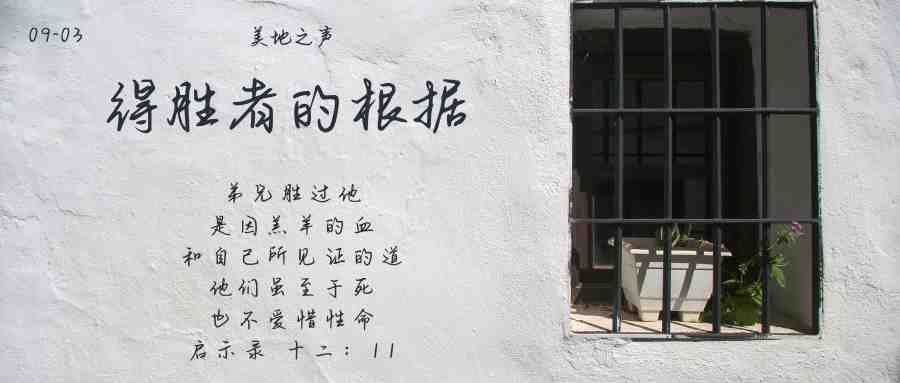 09-03
美地之声
得胜者的根据
弟兄胜过他
是因羔羊的血
和自己所见证的道
他们虽至于死
也不爱惜性命
启示录 十二：11